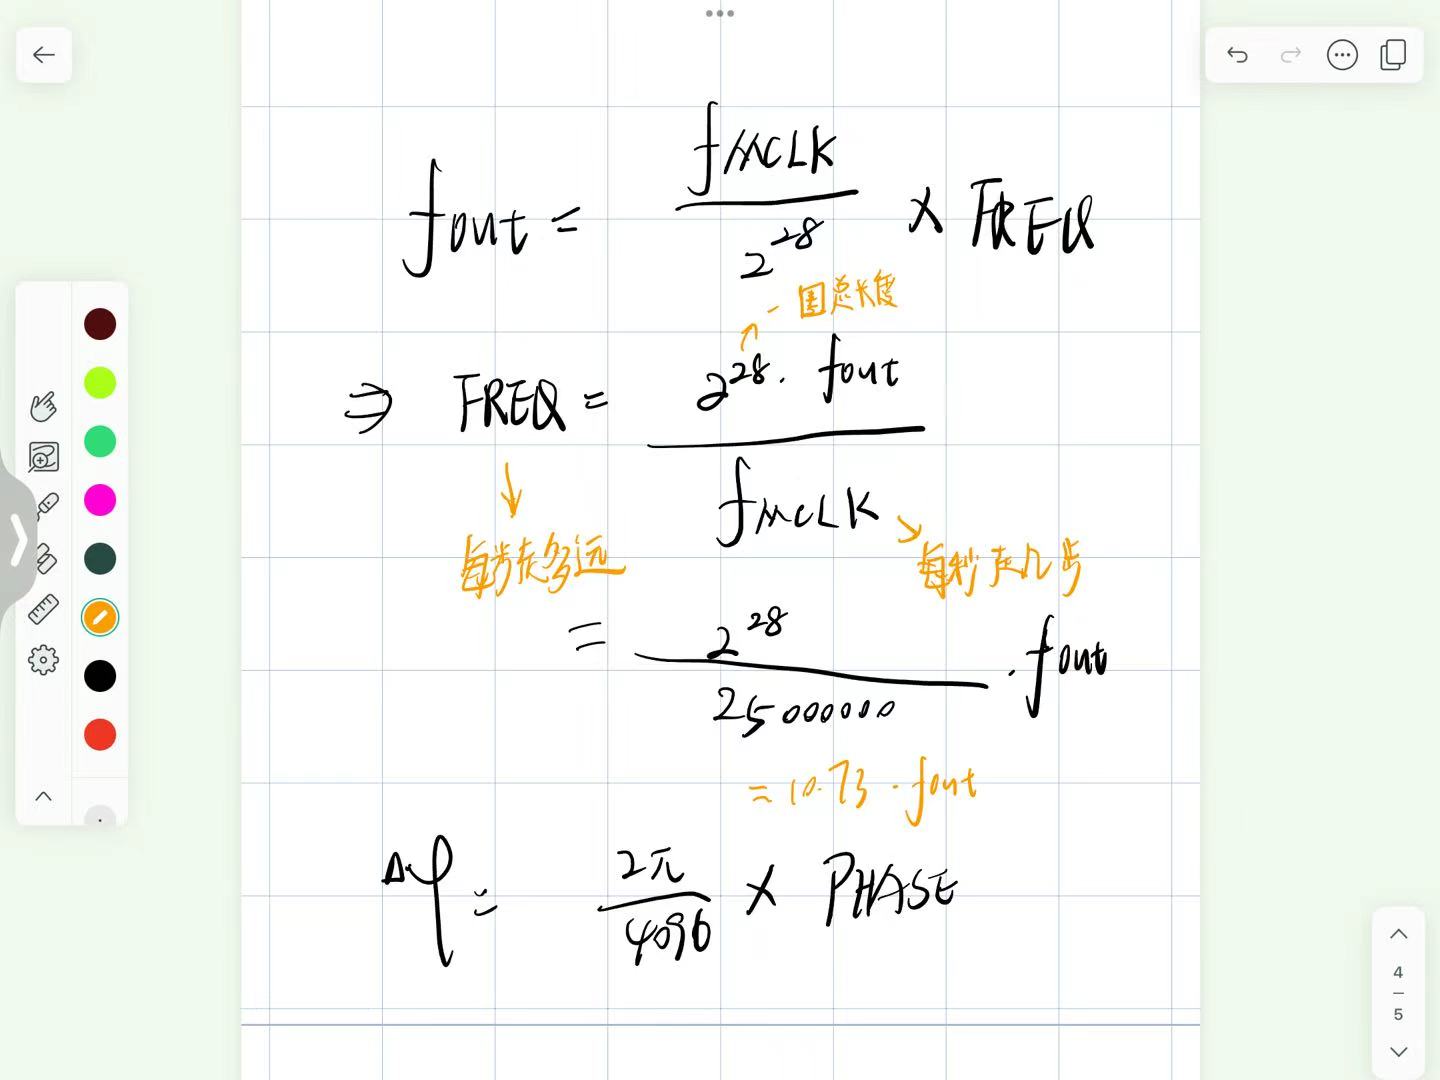 fout = fMCLK / 2^28 × FREQ
一圈总长度
⇒ FREQ = 2^28 · fout / fMCLK
每步走多远
每秒走几步
= 2^28 / 25000000 · fout
= 10.73 · fout
Δφ = 2π / 4096 × PHASE
4
5